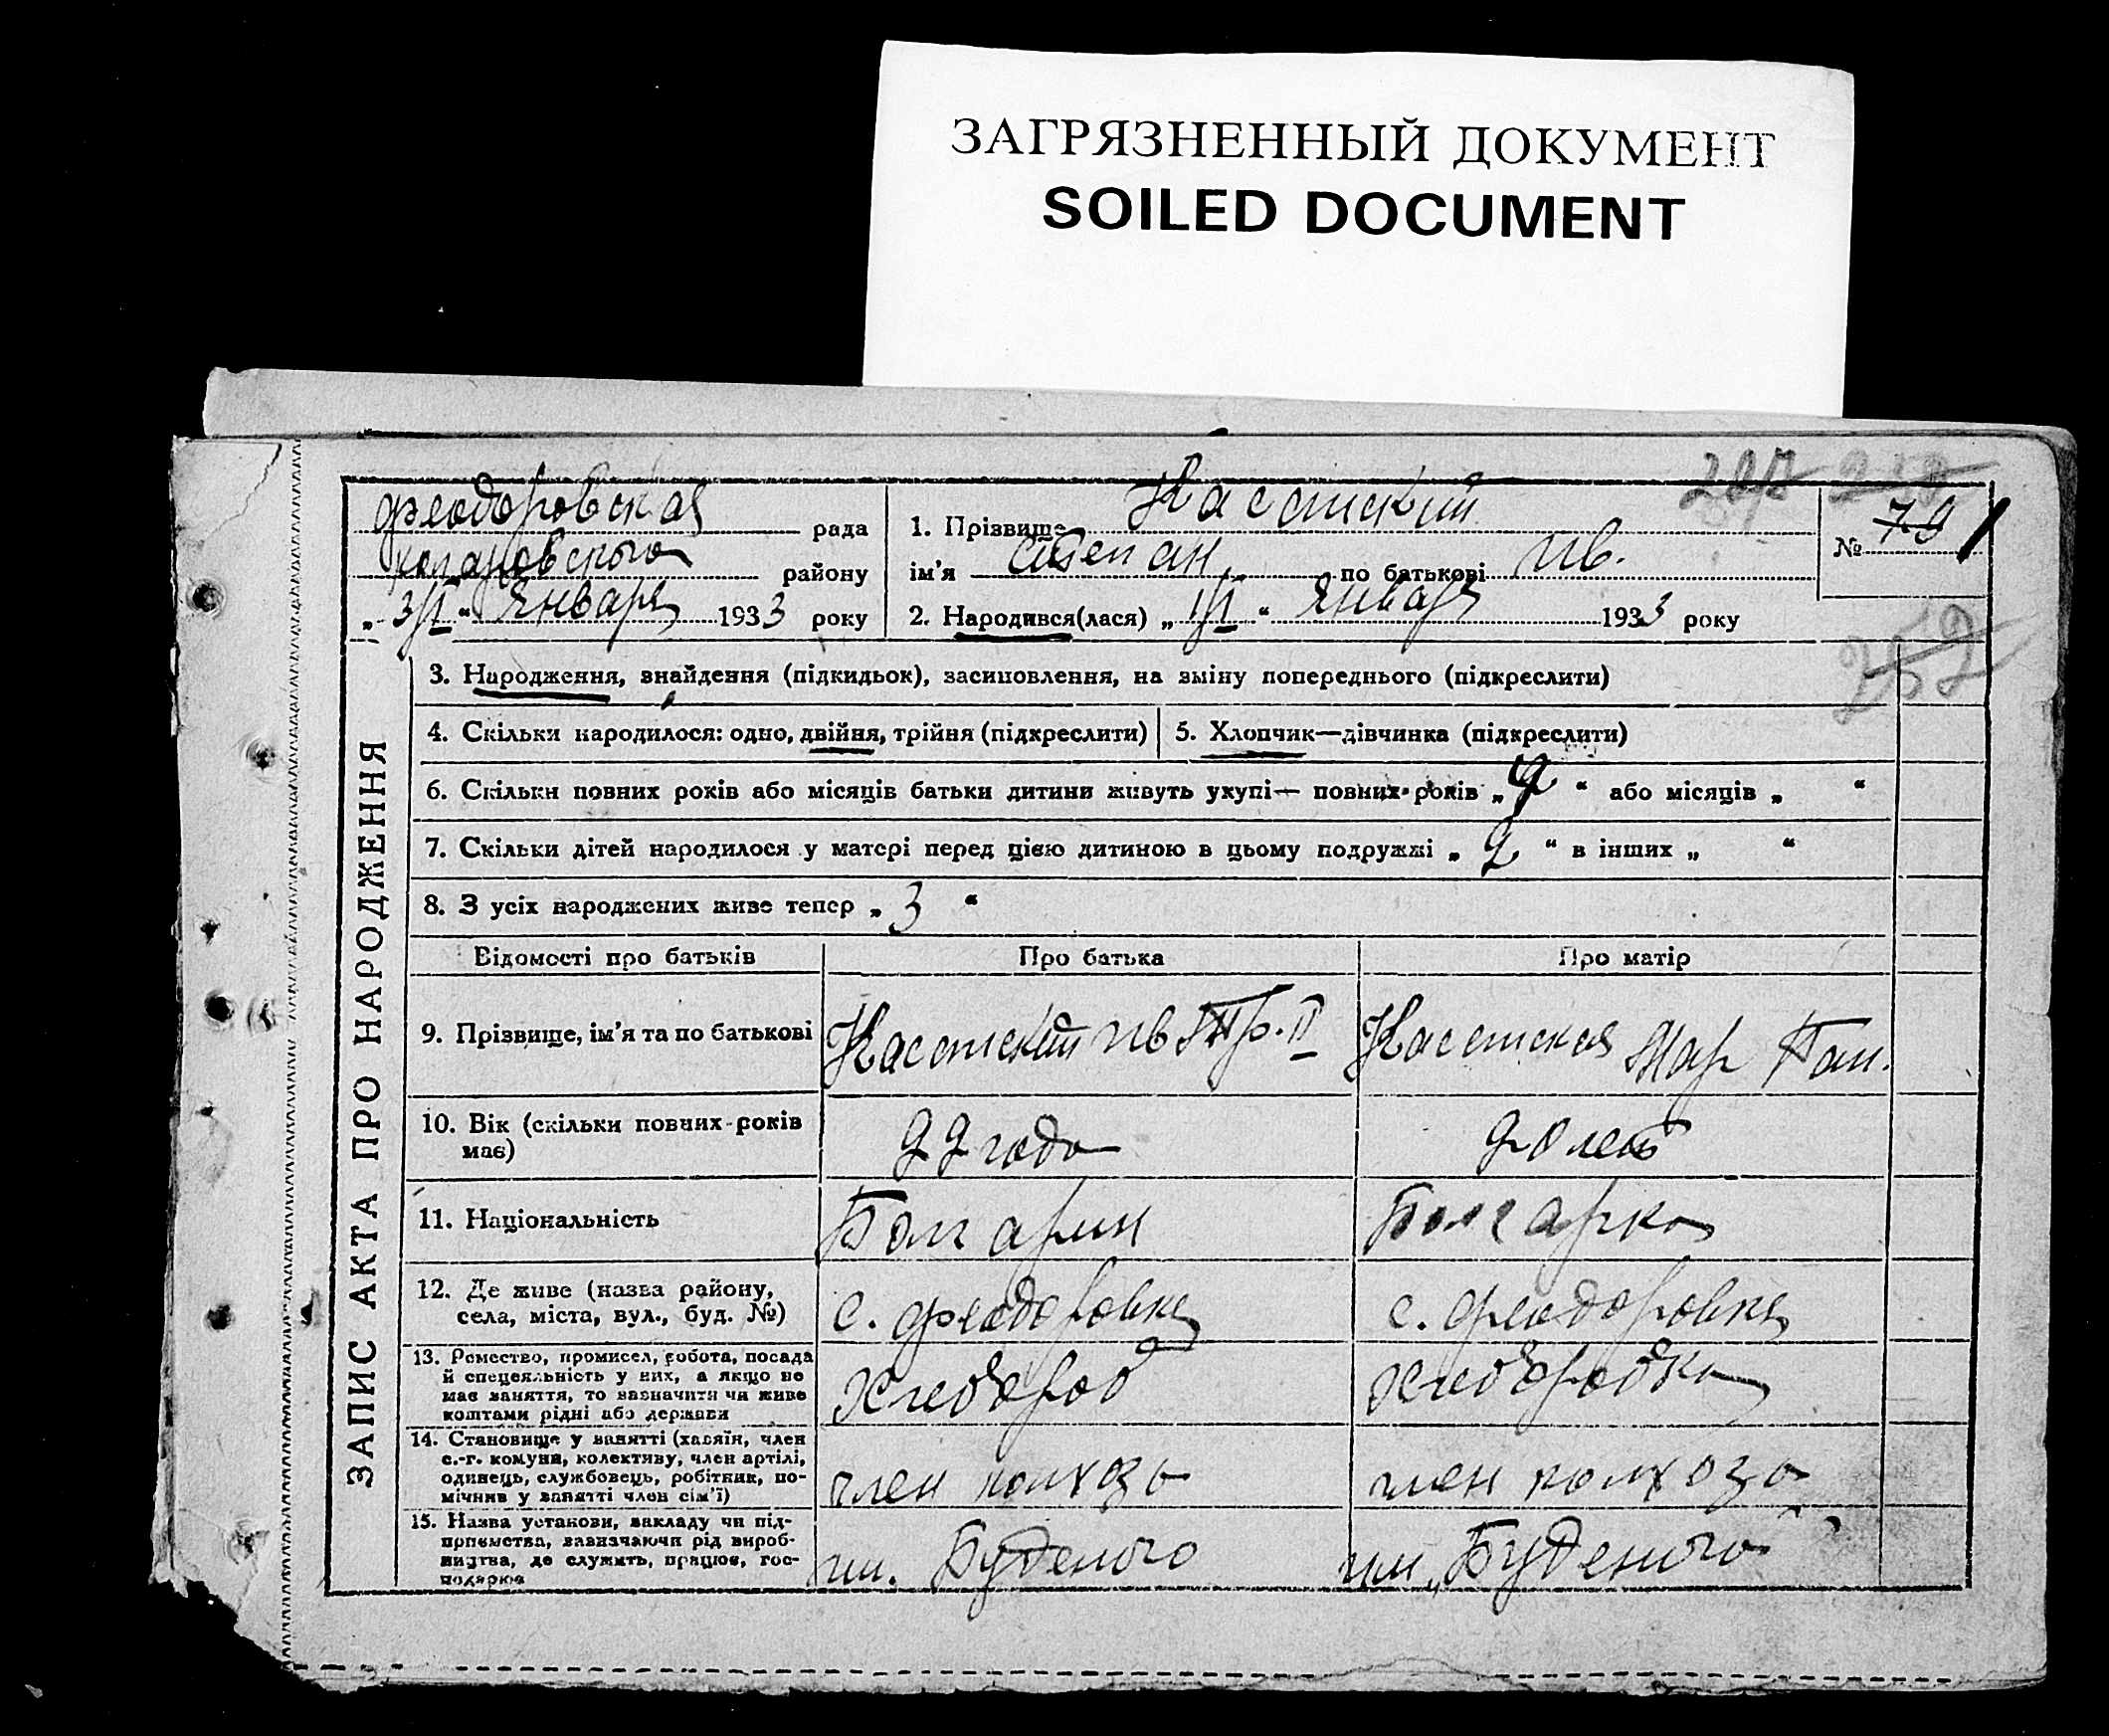 ЗАГРЯЗНЕННЫЙ ДОКУМЕНТ
SOILED DOCUMENT
феодоровская рада
району
„3/I“ Января 1933 року
1. Прізвище
ім'я Степан по батькові Ив.
2. Народився(лася) „1/I“ Января 1933 року
№ 79 1
252
ЗАПИС АКТА ПРО НАРОДЖЕННЯ
3. Народження, знайдення (підкидьок), засиновлення, на зміну попереднього (підкреслити)
4. Скільки народилося: одно, двійня, трійня (підкреслити)
5. Хлопчик—дівчинка (підкреслити)
6. Скільки повних років або місяців батьки дитини живуть укупі— повних років „2“ або місяців „ “
7. Скільки дітей народилося у матері перед цією дитиною в цьому подружжі „2“ в інших „ “
8. З усіх народжених живе тепер „3“
Відомості про батьків Про батька Про матір
9. Прізвище, ім'я та по батькові
10. Вік (скільки повних років має) 22 года 20 лет
11. Національність Болгарин Болгарка
12. Де живе (назва району, с. феодоровка с. феодоровка
села, міста, вул., буд. №)
13. Ремество, промисел, робота, посада Хлебороб Хлеборобка
й спецеяльність у них, а якщо не
має заняття, то зазначити чи живе
коштами рідні або держави
14. Становище у занятті (хазяїн, член член колхоза член колхоза
с.-г. комуни, колективу, член артілі,
одинець, службовець, робітник, по-
мічник у занятті член сім'ї)
15. Назва установи, закладу чи під- им. Буденого им. „Буденого“
приємства, зазначаючи рід вироб-
ництва, де служить, працює, гос-
подарює